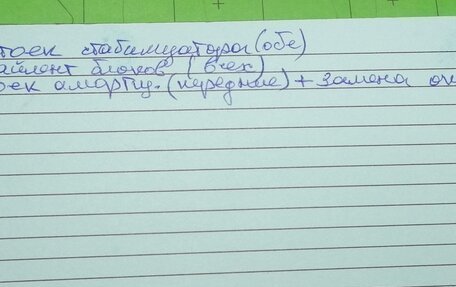 тоек стабилизатора (обе)
айлент блоков (всех)
оек амортиз. (передние) + замена оп